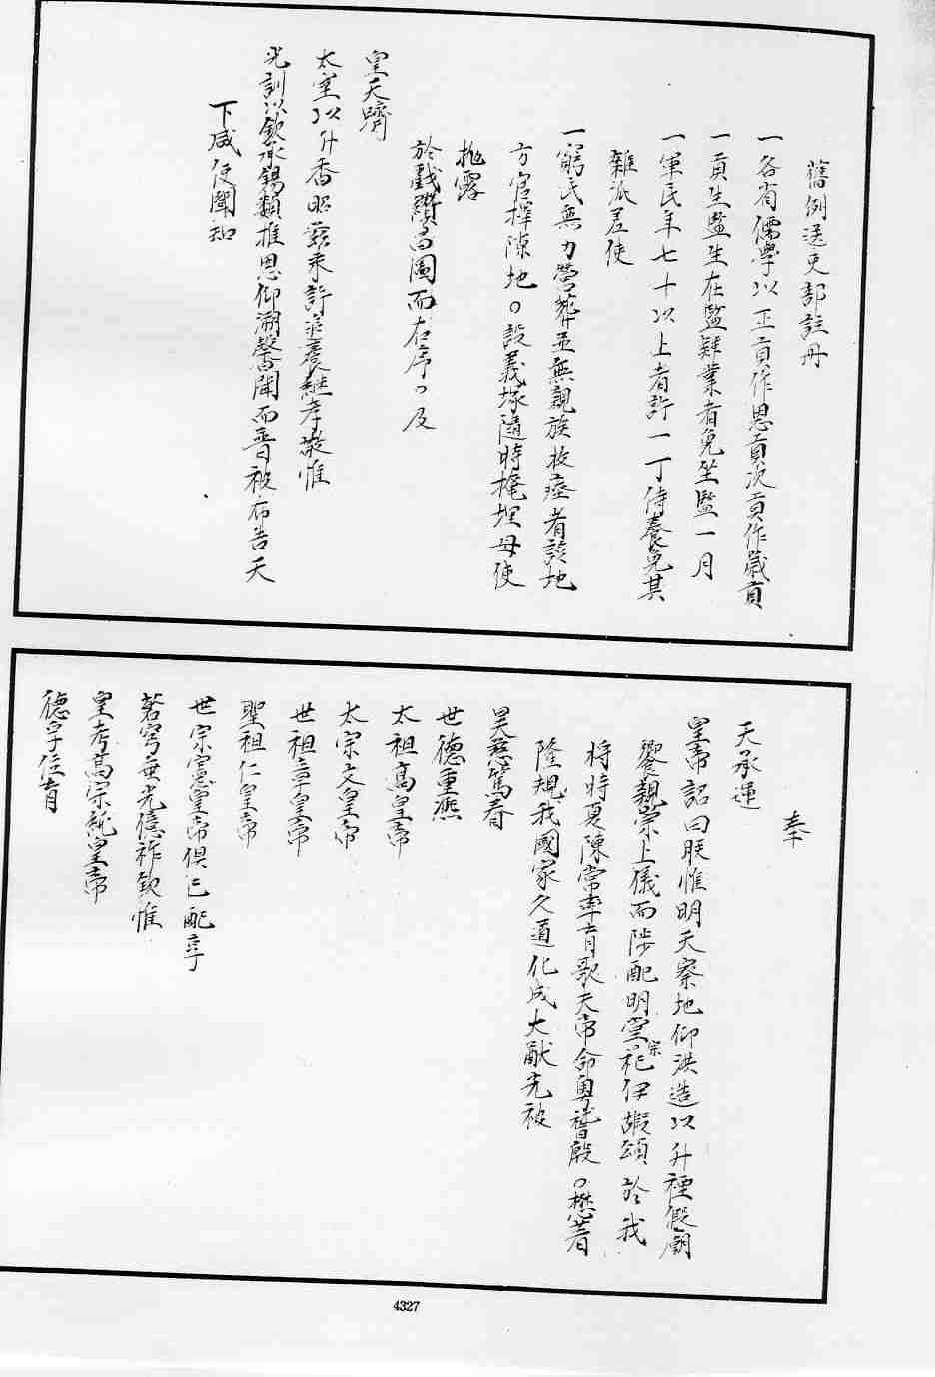 舊例送吏部註冊
一各省儒學以正貢作恩貢次貢作歲貢
一貢生監生在監肄業者免坐監一月
一軍民年七十以上者許一丁侍養免其
雜派差使
一窮民無力營葬並無親族收瘞者該地
方官擇隙地。設義塚隨時掩埋毋使
拋露
於戲纘昌圖而右序。及
皇天躋
太室以升香昭穷來許並養繼孝敬惟
光訓以欽承錫類推恩仰溯馨聞而普被布告天
下咸使聞知
奉
天承運
皇帝詔曰朕惟明天察地仰洪造以升禋假廟
饗親崇上儀而陟配明堂宗祀伊嘏頌於我
將時夏陳常率育歌夫帝命粵稽殷。懋著
隆規我國家久道化成大猷光被
昊慈篤眷
世德重熙
太祖高皇帝
太宗文皇帝
世祖章皇帝
聖祖仁皇帝
世宗憲皇帝俱已配享
蒼穹垂光億祚欽惟
皇考高宗純皇帝
德孚位育
4327